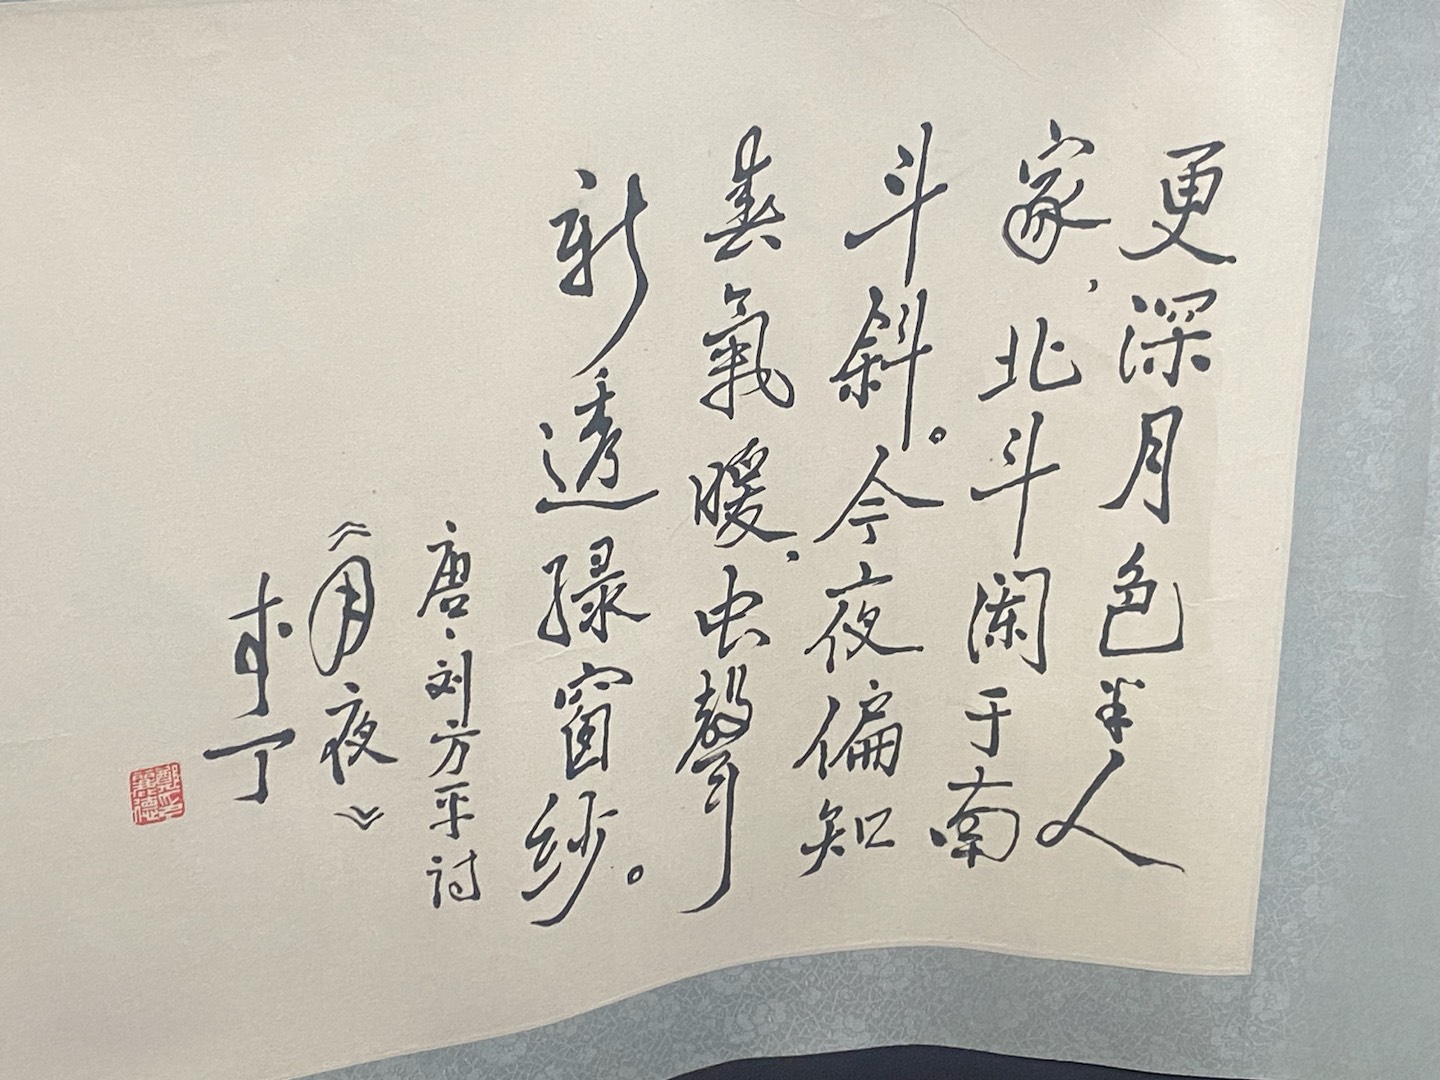 更深月色半人
家，北斗阑于南
斗斜。今夜偏知
春氣暖，虫聲
新透绿窗纱。
唐·刘方平诗
《月夜》